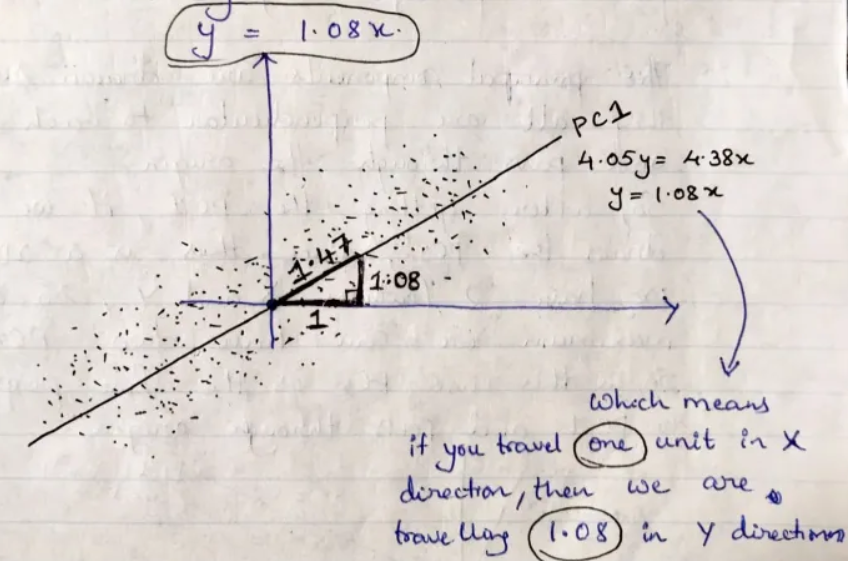 y = 1.08x.
PC1
4.05y = 4.38x
y = 1.08x
1.47
1.08
1
Which means
if you travel one unit in X
direction, then we are
travelling 1.08 in Y direction